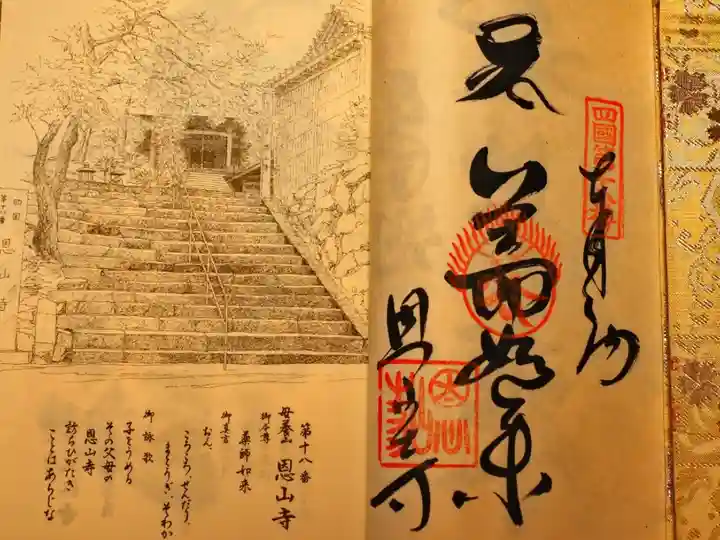 奉拝
薬師如来
恩山寺
四国第十八番
四国
第十八番
恩山寺
第十八番
母養山 恩山寺
御本尊
薬師如来
御真言
おん、
ころころ、せんだり、
まとうぎ、そわか
御詠歌
子をうめる
その父母の
恩山寺
訪らひがたき
ことはあらじな